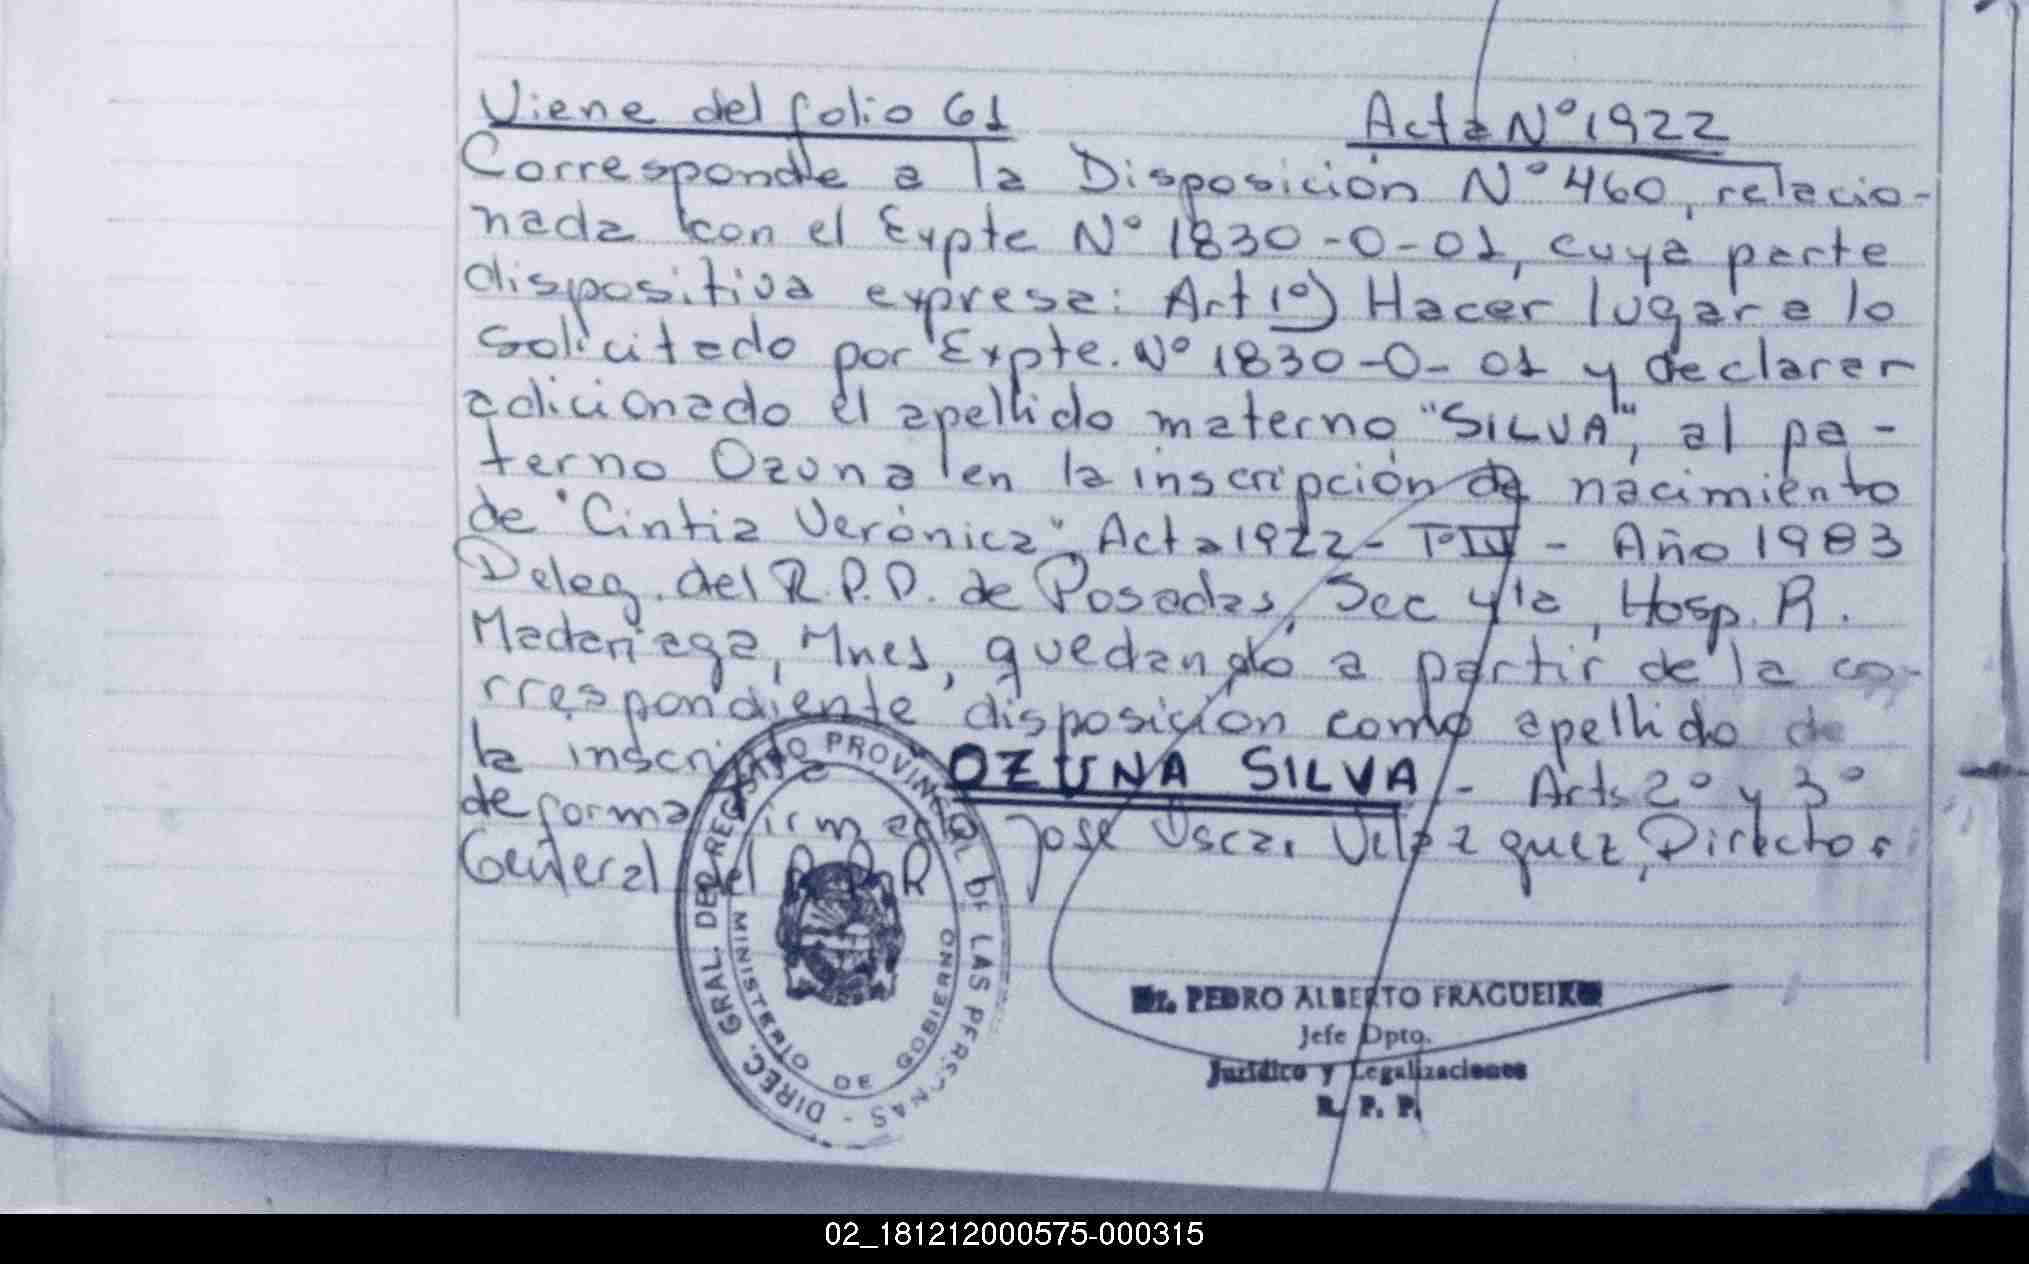 Viene del folio 61 Acta Nº 1922
Corresponde a la Disposición Nº 460, relacio-
nada con el Expte Nº 1830-0-01, cuya parte
dispositiva expresa: Art 1º) Hacer lugar a lo
solicitado por Expte. Nº 1830-0-01 y declarar
adicionado el apellido materno "SILVA", al pa-
terno Ozuna en la inscripción de nacimiento
de "Cintia Verónica", Acta 1922 - Tº IV - Año 1983
Deleg. del R.P.P. de Posadas, Sec 4ta, Hosp. R.
Madariaga, Mnes, quedando a partir de la co-
rrespondiente disposición como apellido de
la inscripta OZUNA SILVA - Arts 2º y 3º
de forma firmado José Oscar Velázquez, Director
General del R.P.P.
DIREC. GRAL. DEL REGISTRO PROVINCIAL DE LAS PERSONAS -
MINISTERIO DE GOBIERNO
Dr. PEDRO ALBERTO FRAGUEIRO
Jefe Dpto.
Jurídico y Legalizaciones
R. P. P.
02_181212000575-000315